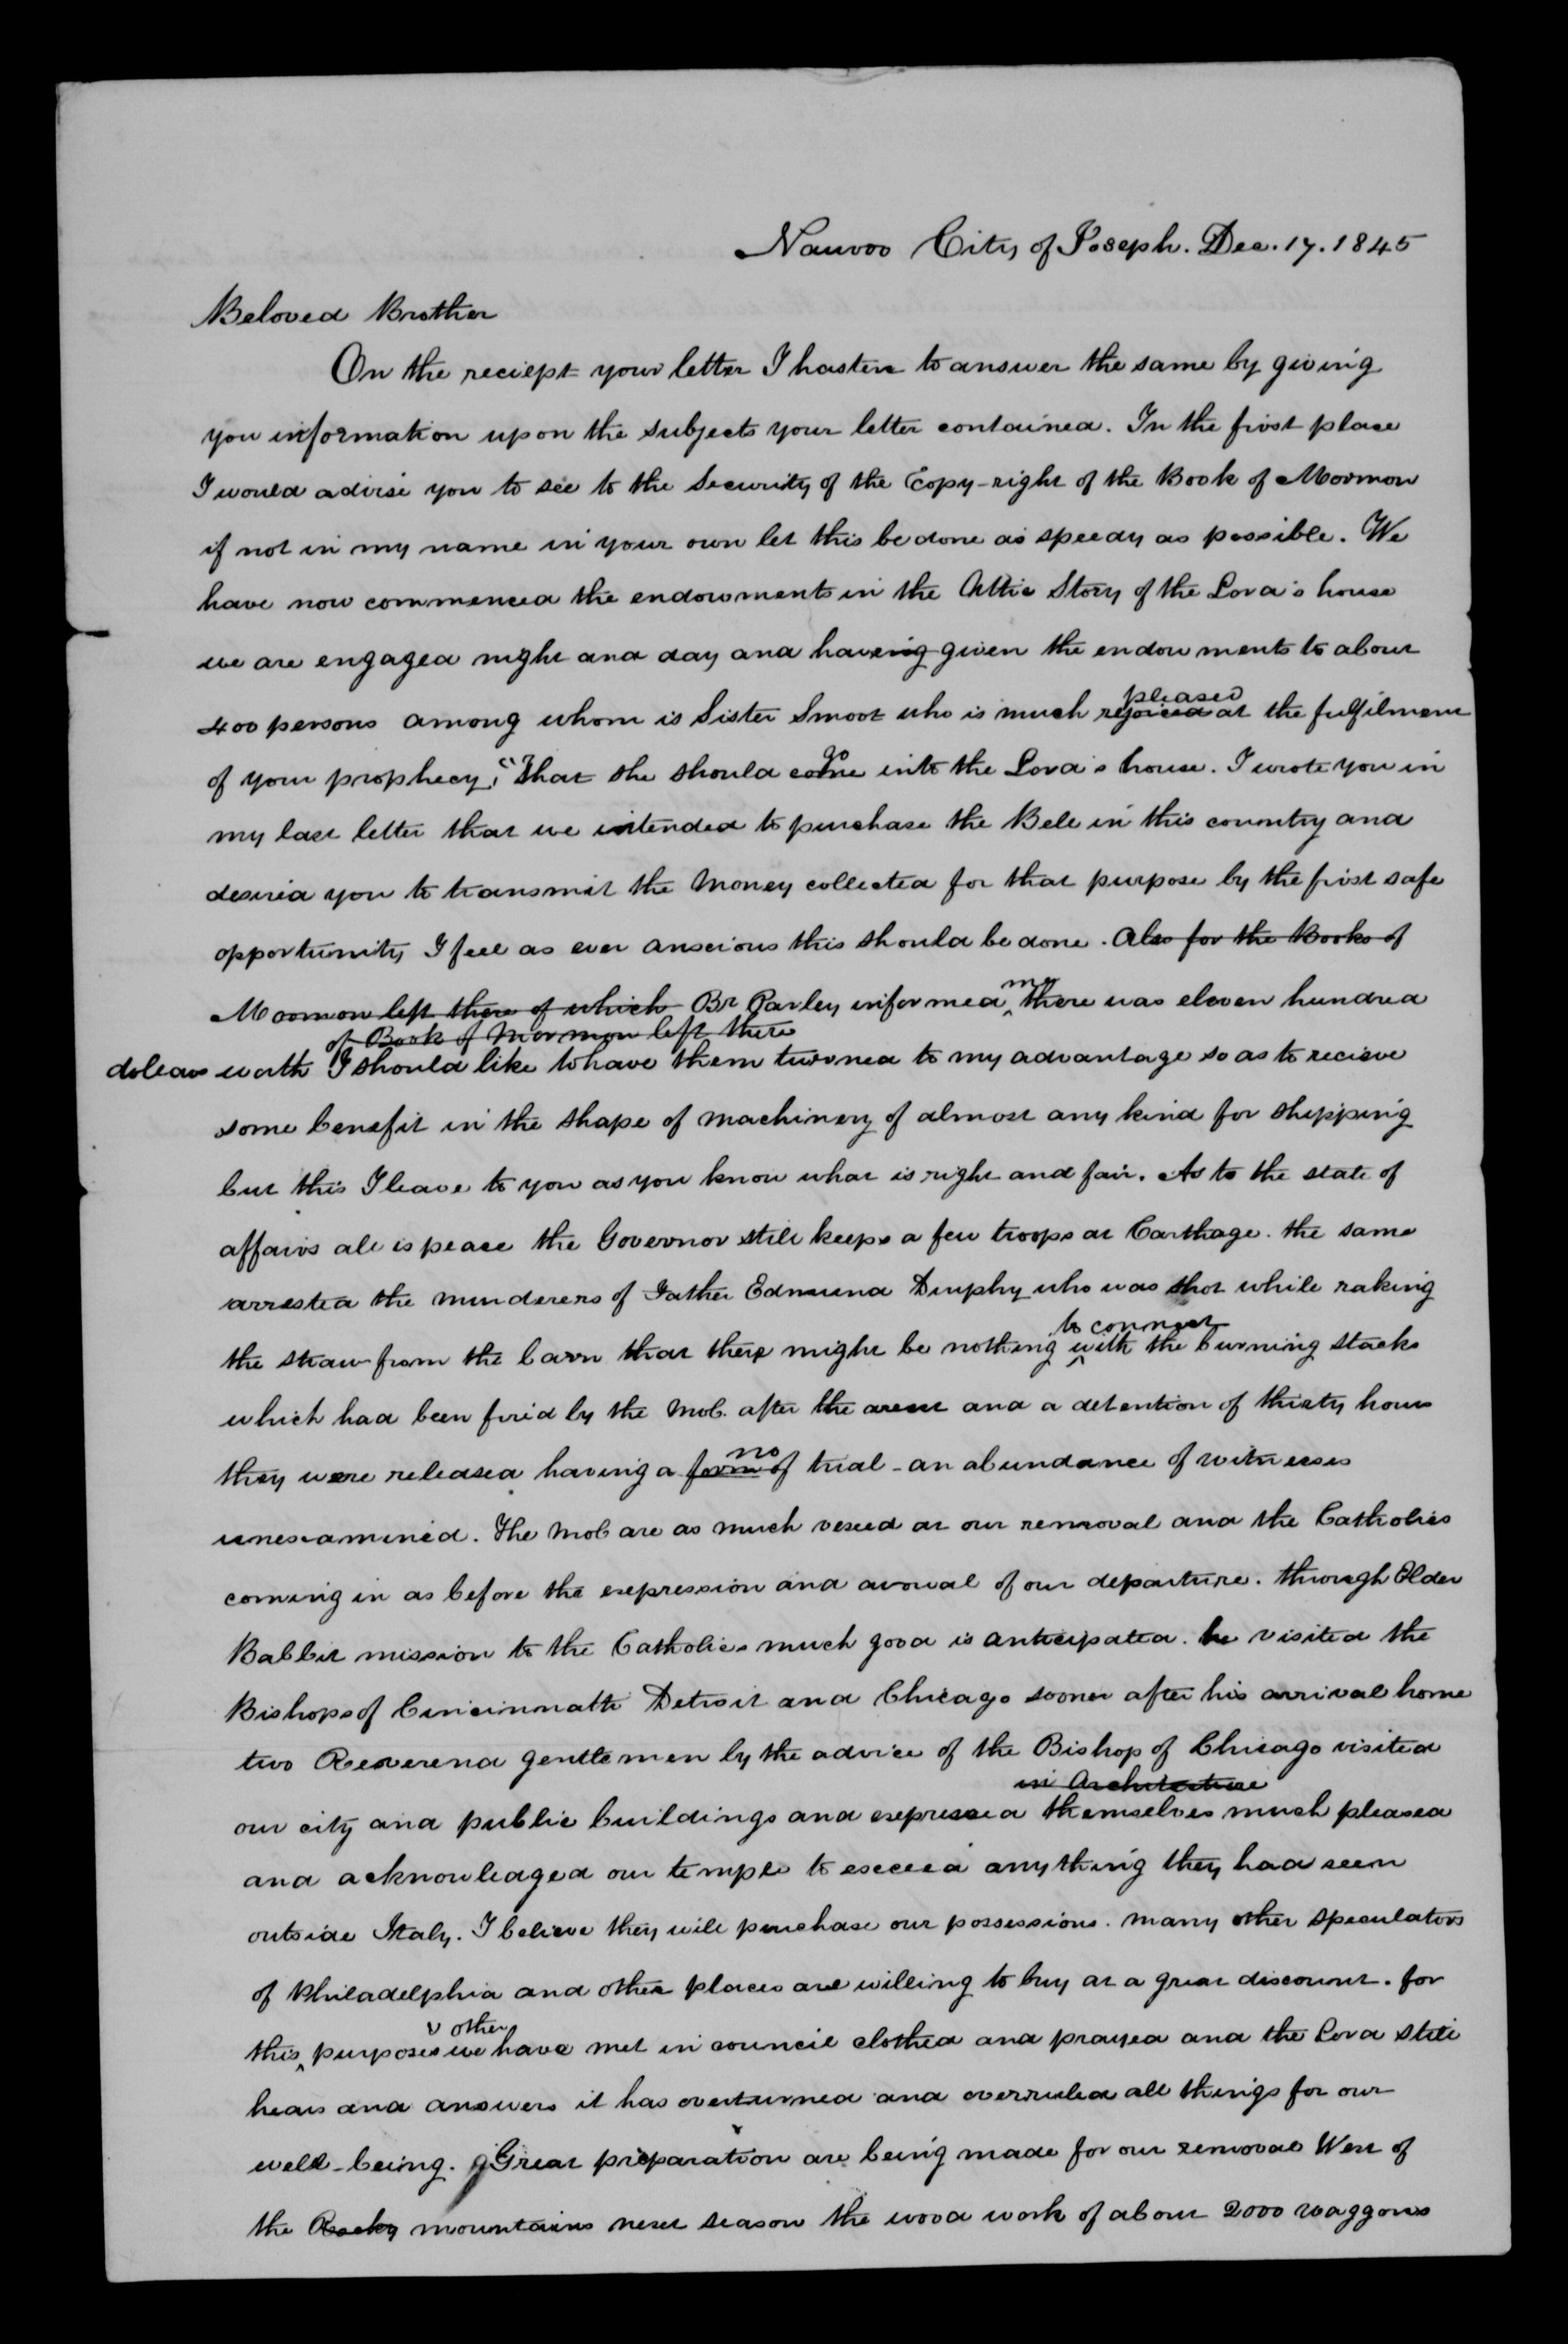 Nauvoo City of Joseph. Dec. 17. 1845
Beloved Brother
On the reciept your letter I hasten to answer the same by giving
you information upon the subjects your letter contained. In the first place
I would advise you to see to the Security of the Copy-right of the Book of Mormon
if not in my name in your own let this be done as speedy as possible. We
have now commenced the endowments in the Attic Story of the Lord's house
we are engaged night and day and having given the endowments to about
pleased
400 persons among whom is Sister Smoot who is much rejoiced at the fulfilment
go
of your prophecy, "That she should come into the Lord's house. I wrote you in
my last letter that we intended to purchase the Bell in this country and
desired you to transmit the Money collected for that purpose by the first safe
opportunity I feel as ever anscious this should be done. Also for the Books of
me
Mormon left there of which Br Parley informed there was eleven hundred
of Book of Mormon left there
dollars worth I should like to have them turned to my advantage so as to recieve
some benefit in the shape of machinery of almost any kind for shipping
but this I leave to you as you know what is right and fair. As to the state of
affairs all is peace the Governor still keeps a few troops at Carthage. the same
arrested the murderers of Father Edmund Durphy who was shot while raking
to connect
the straw from the barn that there might be nothing with the burning stacks
which had been fired by the Mob. after the arest and a detention of thirty hours
no
they were released having a form of trial - an abundance of witnesses
unexamined. The Mob are as much vexed at our removal and the Catholics
coming in as before the expression and avowal of our departure. through Elder
Babbit mission to the Catholics much good is anticipated. he visited the
Bishops of Cincinnatti Detroit and Chicago sooner after his arrival home
two Reverend gentlemen by the advice of the Bishop of Chicago visited
in Architecture
our city and public buildings and expressed themselves much pleased
and acknowledged our temple to exceed anything they had seen
outside Italy. I believe they will purchase our possessions. many other speculators
of Philadelphia and other places are willing to buy at a great discount. for
& other
this purposes we have met in council clothed and prayed and the Lord still
hears and answers it has overturned and overruled all things for our
well-being. Great preparation are being made for our removal West of
the Rocky mountains next season the wood work of about 2000 waggons